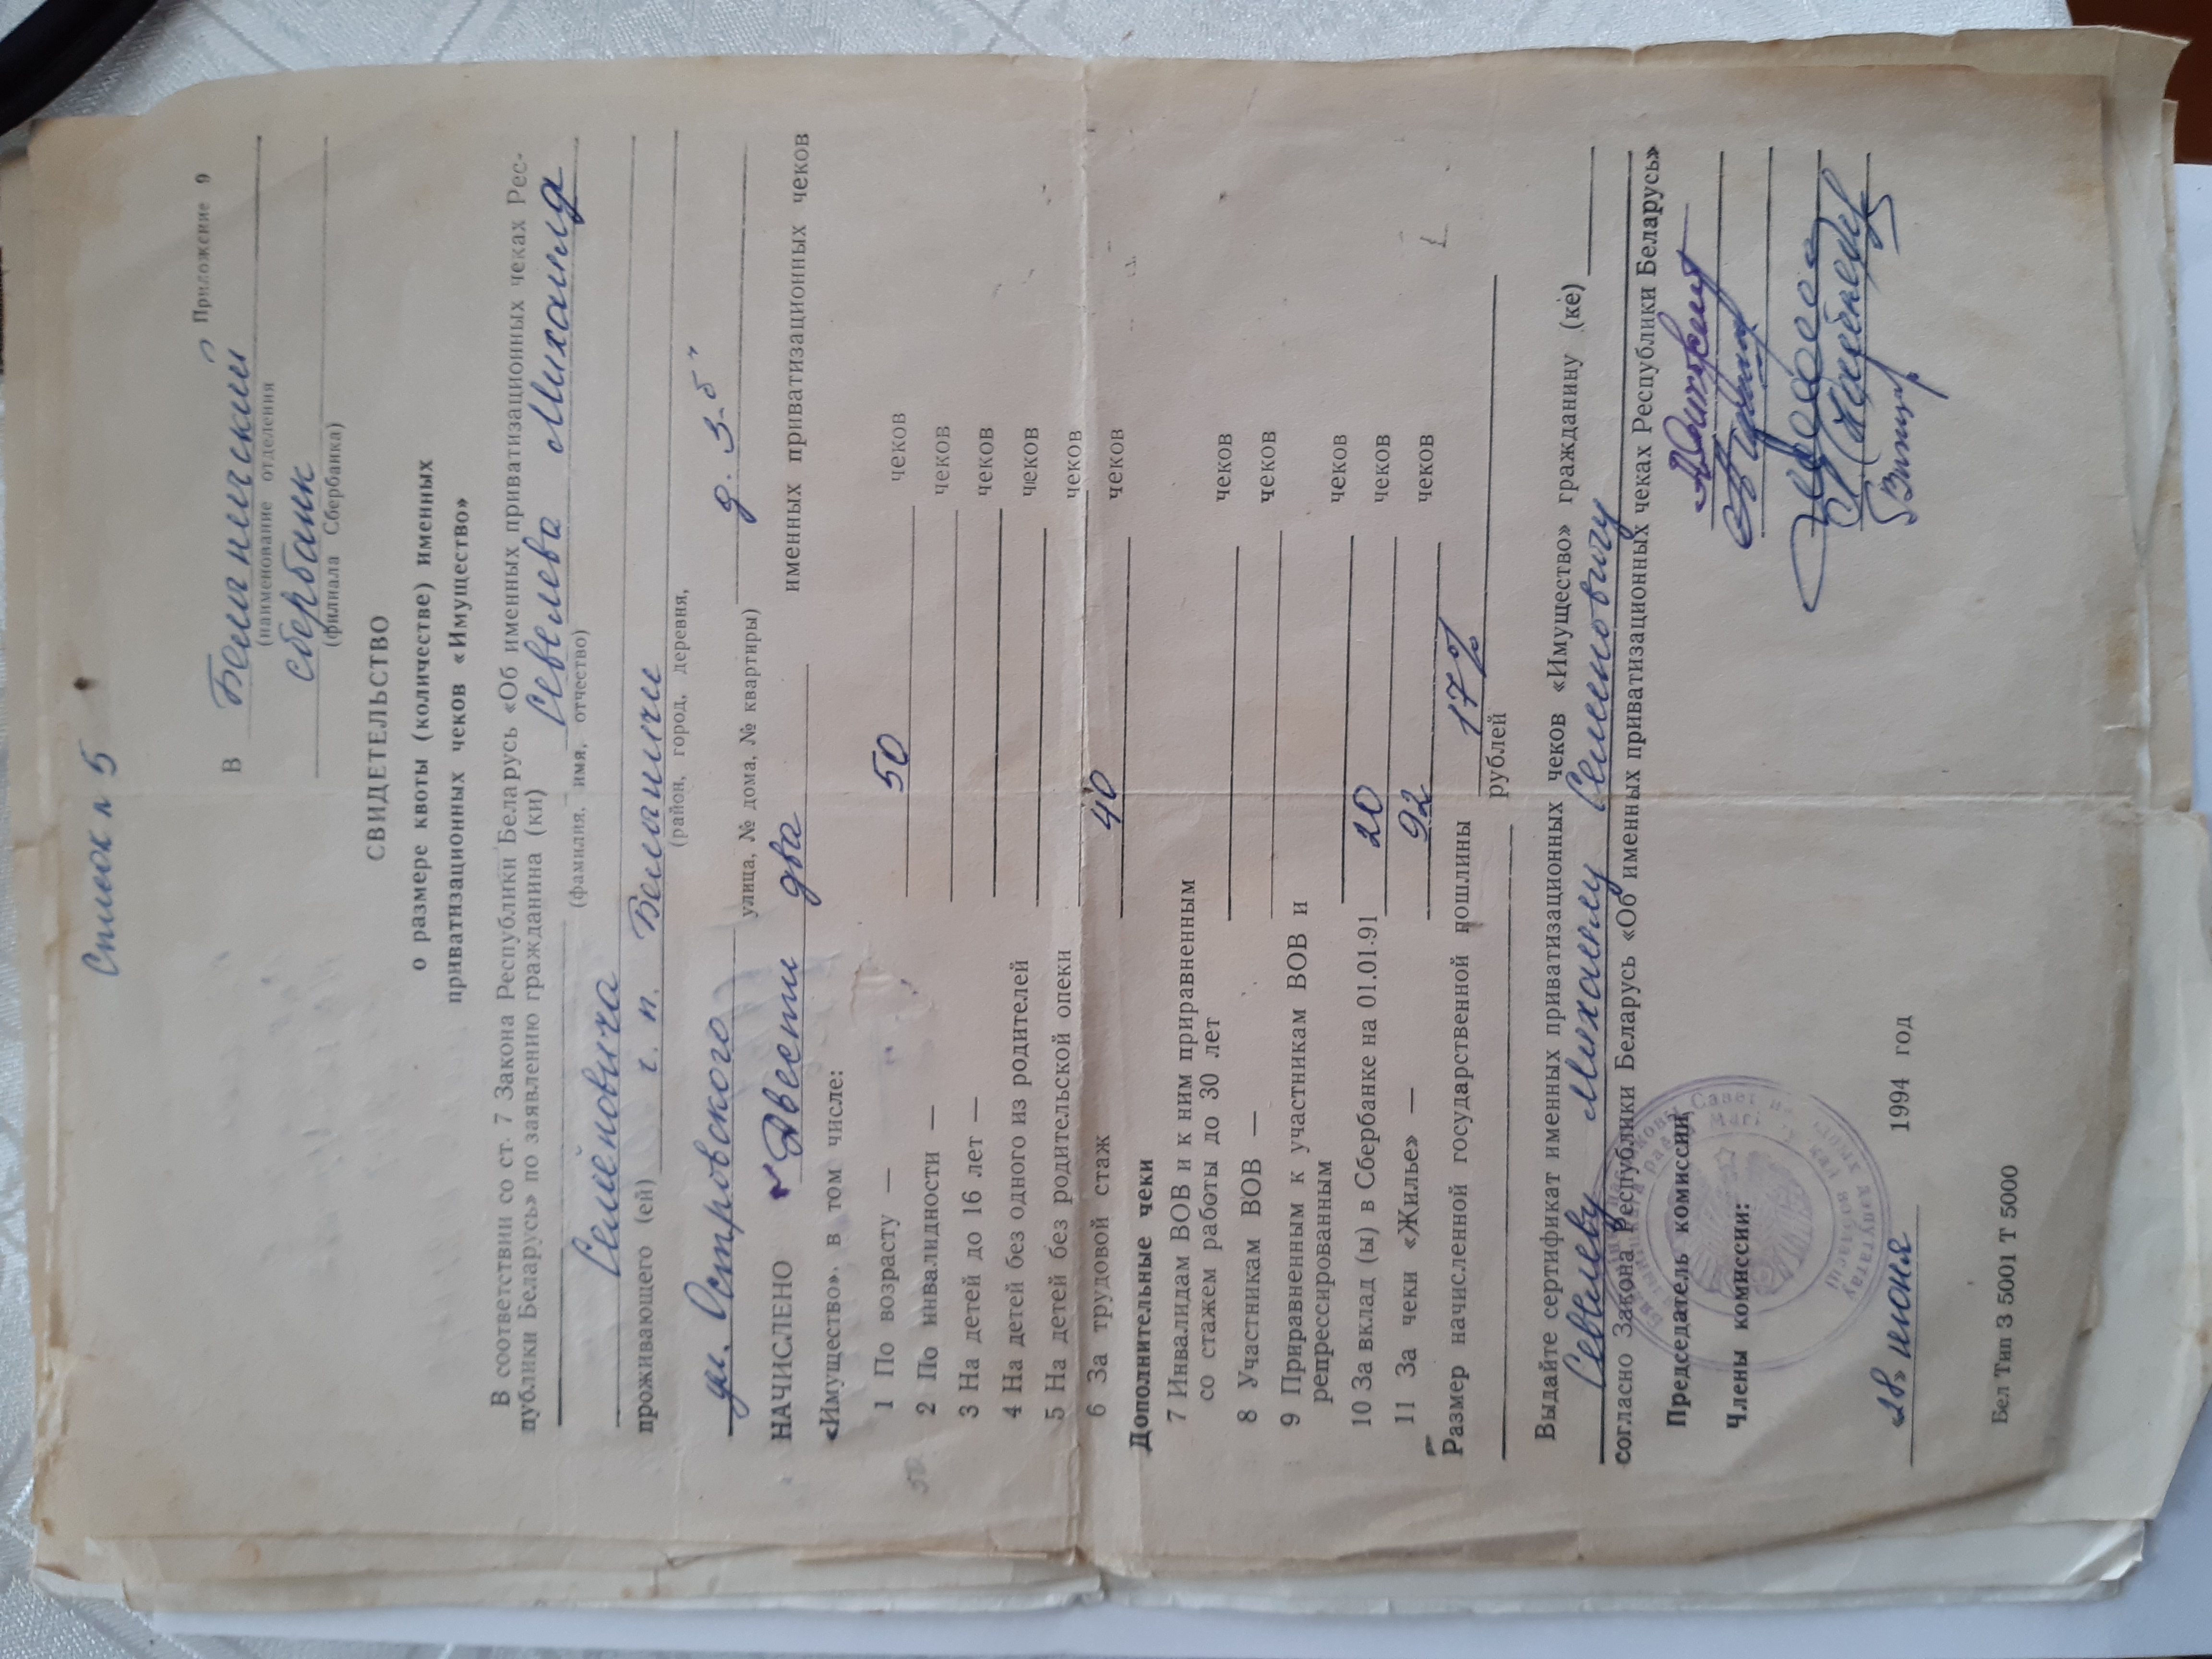 Список № 5
Приложение 9
В Белыничский
(наименование отделения
сбербанк
(филиала Сбербанка)
СВИДЕТЕЛЬСТВО
о размере квоты (количестве) именных
приватизационных чеков «Имущество»
В соответствии со ст. 7 Закона Республики Беларусь «Об именных приватизационных чеках Рес-
публики Беларусь» по заявлению гражданина (ки) Севелева Михаила
(фамилия, имя, отчество)
Семеновича
проживающего (ей) г. п. Белыничи
(район, город, деревня,
ул. Островского улица, № дома, № квартиры) д. 3-б"
НАЧИСЛЕНО Двести два именных приватизационных чеков
«Имущество». в том числе:
1 По возрасту — 50 чеков
2 По инвалидности — чеков
3 На детей до 16 лет — чеков
4 На детей без одного из родителей чеков
5 На детей без родительской опеки чеков
6 За трудовой стаж 40 чеков
Дополнительные чеки
7 Инвалидам ВОВ и к ним приравненным
со стажем работы до 30 лет чеков
8 Участникам ВОВ — чеков
9 Приравненным к участникам ВОВ и
репрессированным чеков
10 За вклад (ы) в Сбербанке на 01.01.91 20 чеков
11 За чеки «Жилье» — 92 чеков
Размер начисленной государственной пошлины 17%
рублей
Выдайте сертификат именных приватизационных чеков «Имущество» гражданину (ке)
Севелеву Михаилу Семеновичу
согласно Закона Республики Беларусь «Об именных приватизационных чеках Республики Беларусь»
Председатель комиссии
Члены комиссии:
дэпутатаў
вобласці
28» июня 1994 год
Бел Тип З 5001 Т 5000